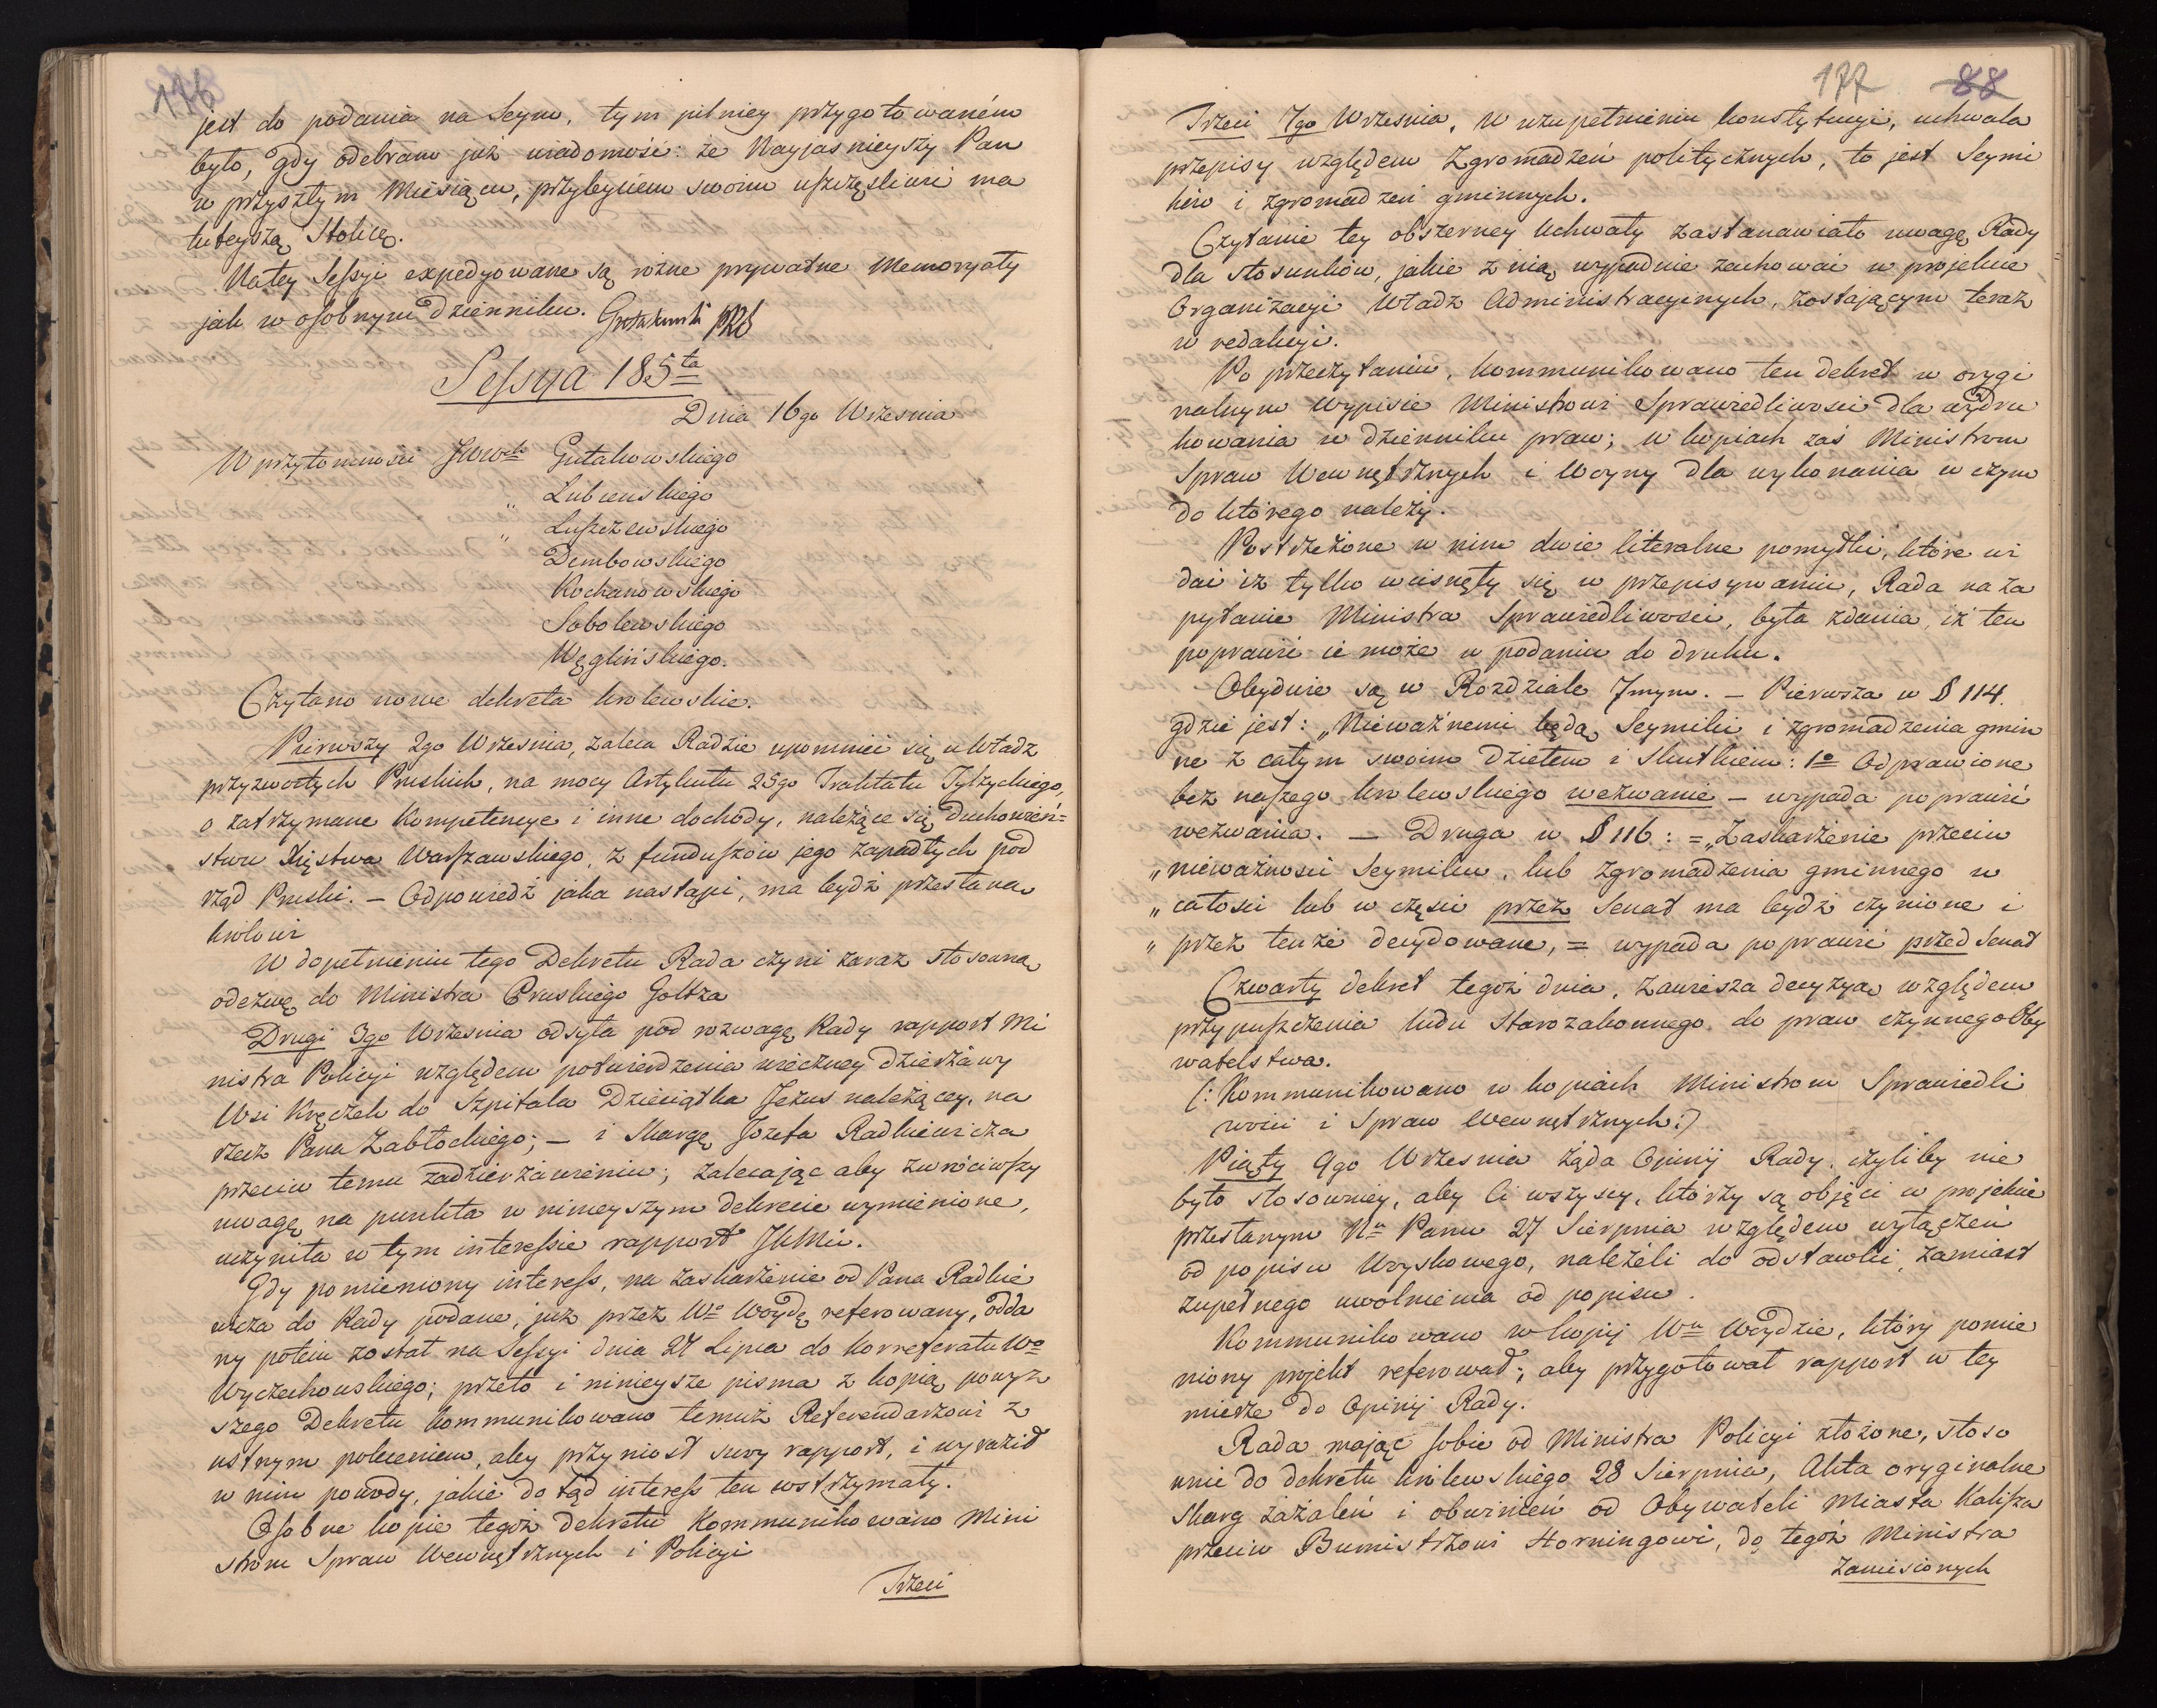 176
jest do podania na Seym, tym pilniey przygotowaném
było, gdy odebrano już wiadomość: że Nayjaśnieyszy Pan
w przyszłym Miesiącu, przybyciem swoim uszczęśliwić ma
tuteyszą Stolicę.
Na tey Sessyi expedyowane są różne prywatne Memoryały
jak w osobnym Dzienniku. Gutakowski
Sessya 185ta
Dnia 16go Września
W przytomności JWWch Gutakowskiego
„ Lubieńskiego
„ Łuszczewskiego
Dembowskiego
Kochanowskiego
Sobolewskiego
Węglińskiego.
Czytano nowe dekreta królewskie.
Pierwszy 2go Września, zaleca Radzie upomnieć się u Władz
przyzwoitych Pruskich, na mocy Artykułu 25go Traktatu Tylżyckiego,
o zatrzymane Kompetencye i inne dochody, należące się Duchowień=
stwu Xięstwa Warszawskiego, z funduszów jego zapadłych pod
rząd Pruski. — Odpowiedź jaka nastąpi, ma bydź przesłana
królowi
W dopełnieniu tego Dekretu Rada czyni zaraz stosowną
odezwę do Ministra Pruskiego Goltza
Drugi 3go Września odsyła pod rozwagę Rady rapport Mi
nistra Policyi względem potwierdzenia wieczney dzierżawy
Wsi Kręczek do Szpitala Dzieciątka Jezus należącey, na
rzecz Pana Zabłockiego; — i Skargę Jozefa Radkiewicza
przeciw temu zadzierżawieniu; zalecając aby zwróciwszy
uwagę na punkta w ninieyszym dekrecie wymienione,
uczyniła w tym interessie rapport JKMci.
Gdy pomieniony interess, na zaskarżenie od Pana Radkie
wicza do Rady podane, już przez Wo Woydę referowany, odda
ny potem został na Sessyi dnia 27 Lipca do korreferatu Wo
Wyczechowskiego; przeto i ninieysze pisma z kopią powyz
szego Dekretu kommunikowano temuż Referendarzowi z
ustnym poleceniem, aby przyniosł swoy rapport, i wyraził
w nim powody, jakie do tąd interess ten wstrzymały.
Osobne kopie tegóż dekretu Kommunikowano Mini
strom Spraw Wewnętrznych i Policyi
Trzeci
177 88
Trzeci 7go Września, w uzupełnieniu konstytucyi, uchwala
przepisy względem Zgromadzeń politycznych, to jest Seymi
ków i zgromadzeń gminnych.
Czytanie tey obszerney Uchwały zastanawiało uwagę Rady
dla stosunków, jakie z nią wypadnie zachować w projekcie
Organizacyi Władz Administracyinych, zostającym teraz
w redakcyi.
Po przeczytaniu, kommunikowano ten dekret w orygi
nalnym wypisie Ministrowi Sprawiedliwości dla wydru
kowania w dzienniku praw; w kopiach zaś Ministrom
Spraw Wewnętrznych i Woyny dla wykonania w czym
do którego należy.
Postrzeżone w nim dwie literalne pomyłki, które wi
dać iż tylko wcisnęły się w przepisywaniu, Rada na za
pytanie Ministra Sprawiedliwości, była zdania, iż ten
poprawić ie może w podaniu do druku.
Obydwie są w Rozdziale 7mym. — Pierwsza w § 114.
gdzie jest: „Nieważnemi będą Seymiki i zgromadzenia gmin
ne z całym swoim dziełem i skutkiem: 1o Odprawione
bez naszego królewskiego wezwanie — wypada poprawić
wezwania. — Druga w § 116: = „Zaskarżenie przeciw
„nieważności Seymiku, lub zgromadzenia gminnego w
„całości lub w części przez Senat ma bydź czynione i
„przez tenże decydowane, = wypada poprawić przed Senat
Czwarty dekret tegoż dnia, zawiesza decyzyą względem
przypuszczenia ludu Starozakonnego do praw czynnego Oby
watelstwa.
(: Kommunikowano w kopiach Ministrom Sprawiedli
wości i Spraw Wewnętrznych :)
Piąty 9go Września żąda Opinij Rady, czyliby nie
było stosowniey, aby Ci wszyscy, którzy są objęci w projekcie
przesłanym Nu Panu 27 Sierpnia względem wyłączeń
od popisu Woyskowego, należeli do odstawki, zamiast
zupełnego uwolnienia od popisu.
Kommunikowano w kopij Wu Woydzie, który pomie
niony projekt referował; aby przygotował rapport w tey
mierze do Opinij Rady.
Rada mając sobie od Ministra Policyi złożone, stoso
wnie do dekretu królewskiego 28 Sierpnia, Akta oryginalne
Skarg zażaleń i obwinień od Obywateli Miasta Kalisza
przeciw Burmistrzowi Horningowi, do tegóż Ministra
zaniesionych